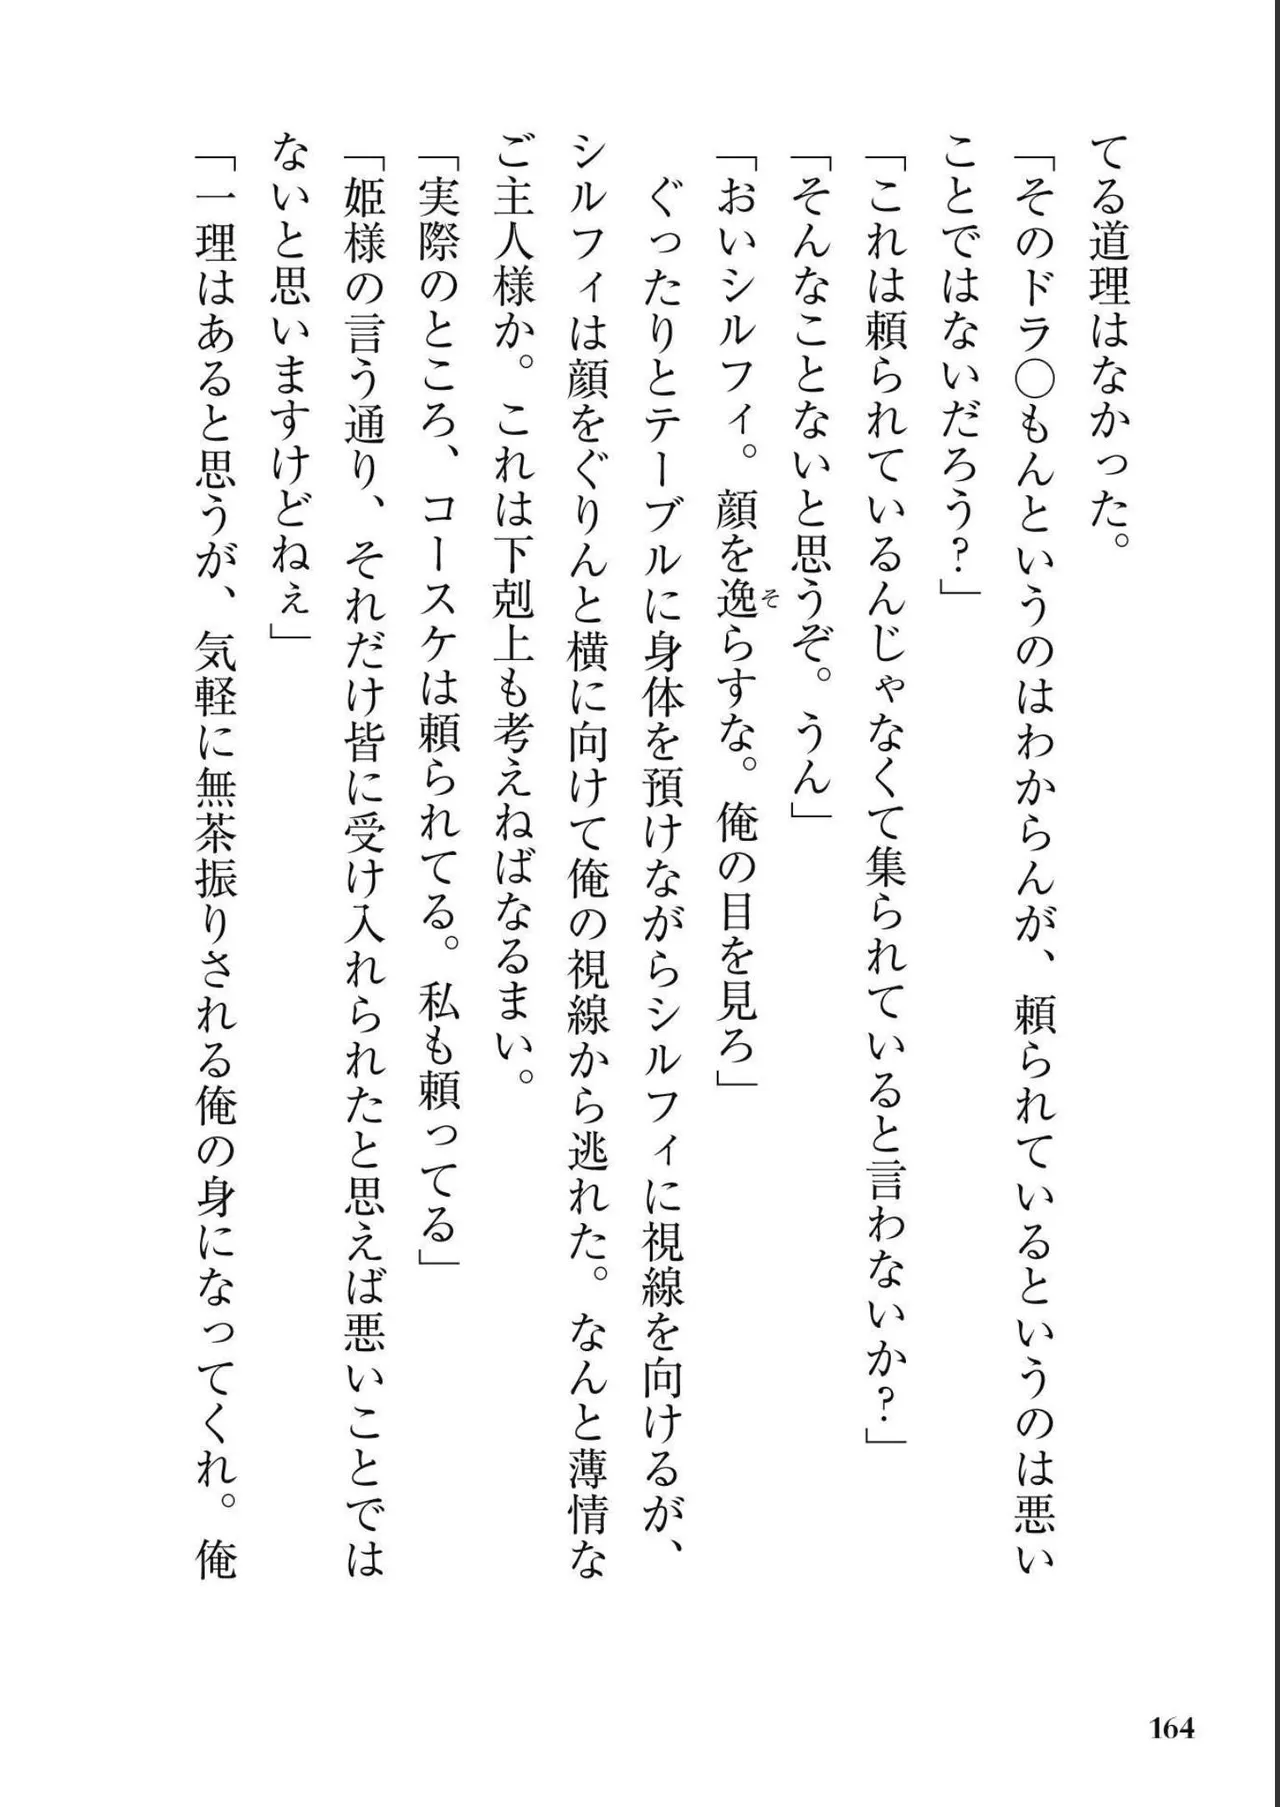 てる道理はなかった。
「そのドラ〇もんというのはわからんが、頼られているというのは悪い
ことではないだろう?」
「これは頼られているんじゃなくて集られていると言わないか?」
「そんなことないと思うぞ。うん」
「おいシルフィ。顔を逸らすな。俺の目を見ろ」
そ
ぐったりとテーブルに身体を預けながらシルフィに視線を向けるが、
シルフィは顔をぐりんと横に向けて俺の視線から逃れた。なんと薄情な
ご主人様か。これは下剋上も考えねばなるまい。
「実際のところ、コースケは頼られてる。私も頼ってる」
「姫様の言う通り、それだけ皆に受け入れられたと思えば悪いことでは
ないと思いますけどねぇ」
「一理はあると思うが、気軽に無茶振りされる俺の身になってくれ。俺
164